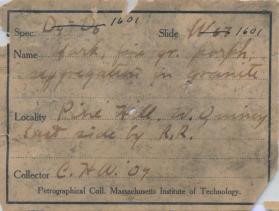 Spec. 1601 Slide 1601
Name dark, fine gr. porph.
segregation in granite
Locality Pine Hill, W. Quincy
East side by R.R.
Collector C.H.W. '09
Petrographical Coll. Massachusetts Institute of Technology.